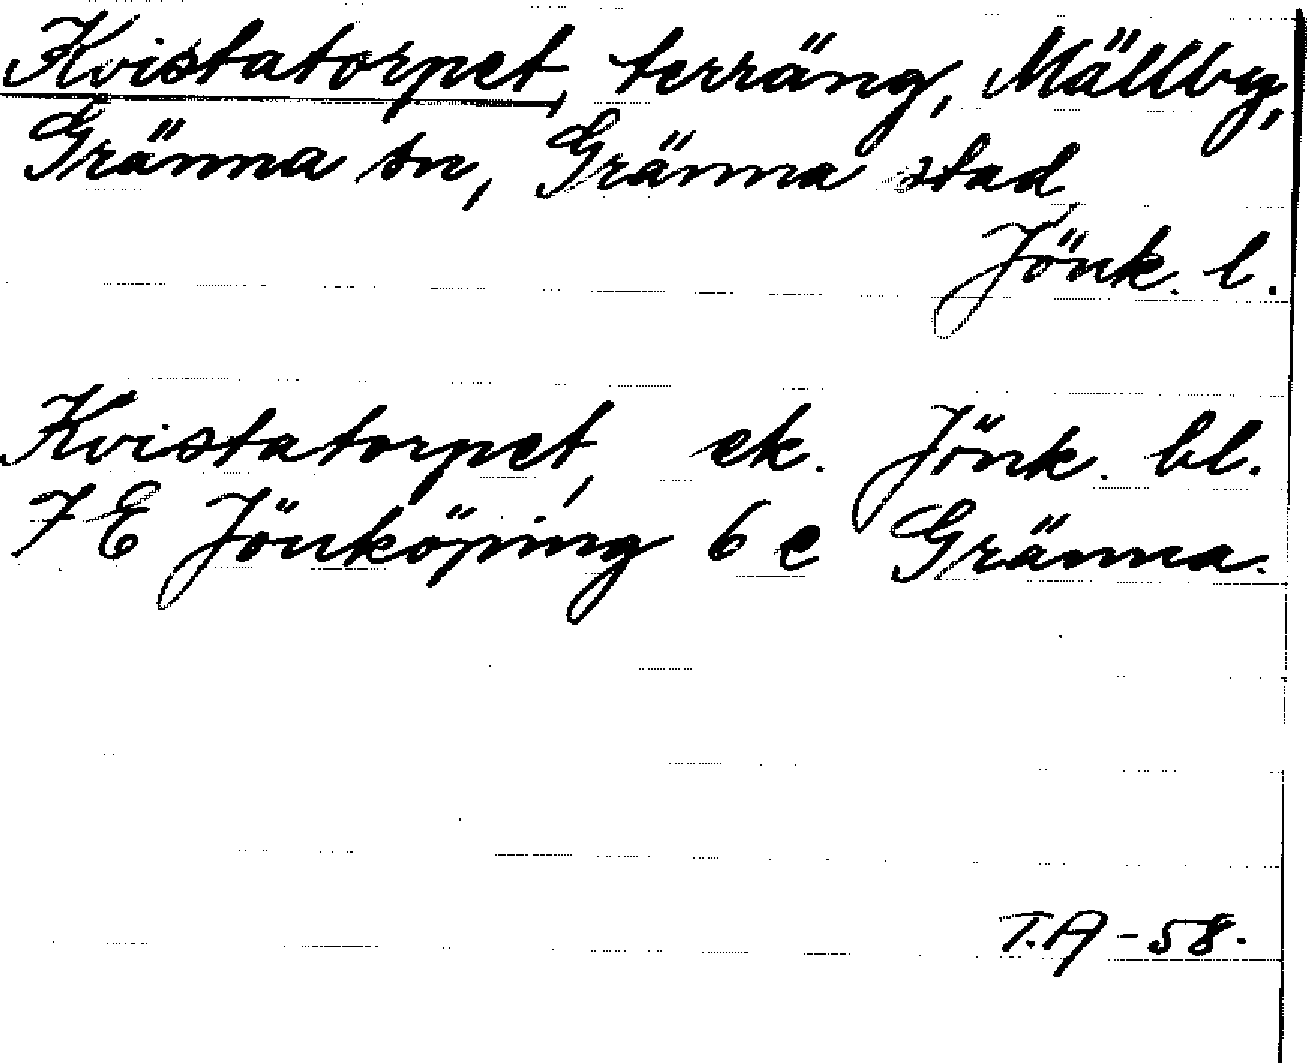 Kvistatorpet, terräng, Mällby,
Gränna sn, Gränna stad,
Jönk. l.
Kvistatorpet, ek. Jönk. bl.
7 E Jönköping 6 e Gränna.
T.A -58.